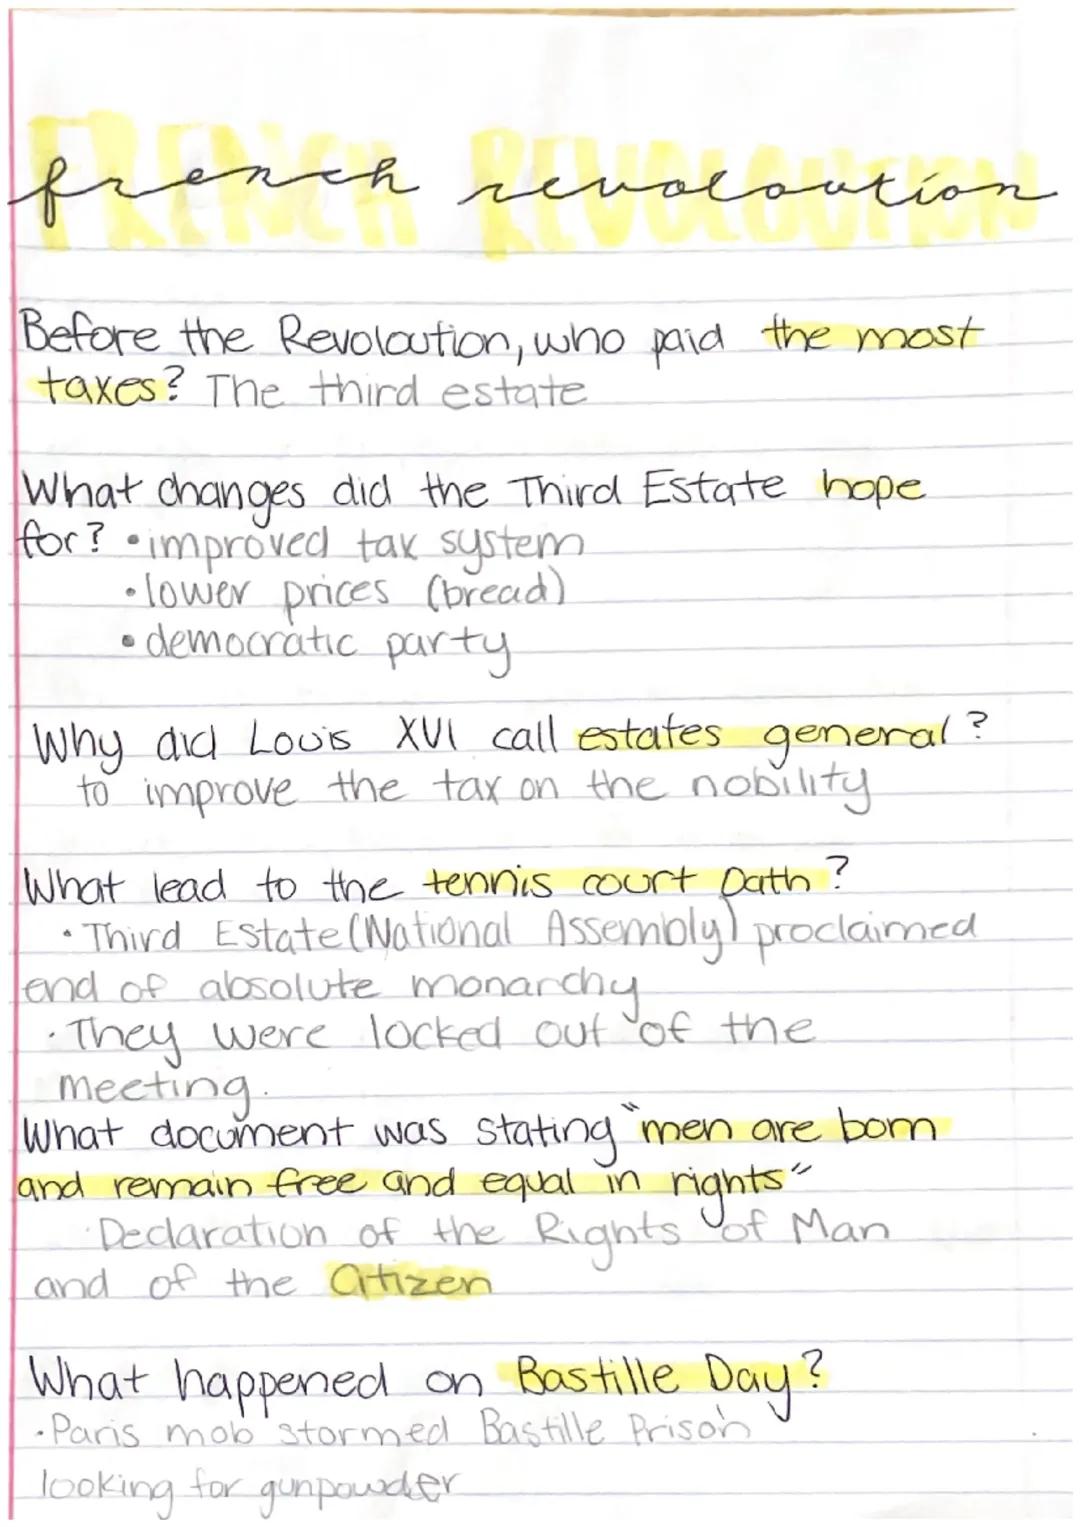 FRENCH REVOLOUTION
french revoloution
Before the Revoloution, who paid the most
taxes? The third estate
What changes did the Third Estate hope
for? •improved tax system
•lower prices (bread)
•democratic party
Why did Louis XVI call estates general?
to improve the tax on the nobility
What lead to the tennis court Oath?
•Third Estate (National Assembly) proclaimed
end of absolute monarchy
•They were locked out of the
meeting.
What document was stating "men are born
and remain free and equal in rights"
Declaration of the Rights of Man
and of the Citizen
What happened on Bastille Day?
•Paris mob stormed Bastille Prison
looking for gunpowder